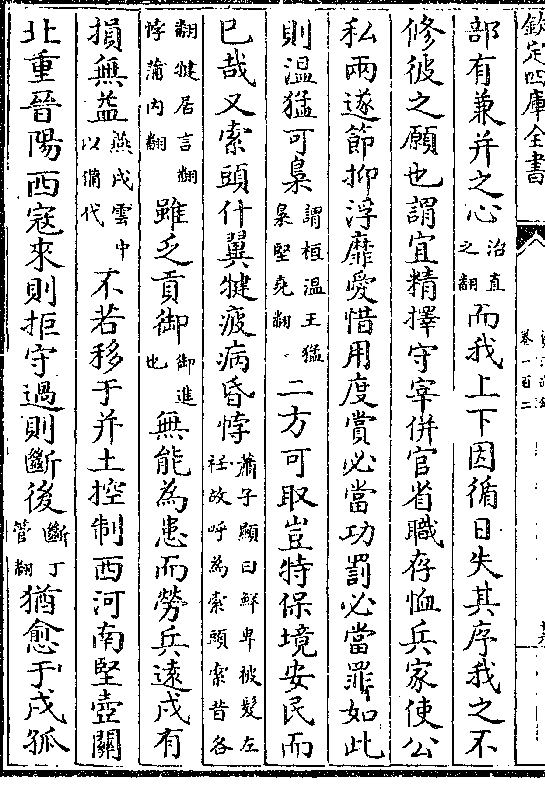 欽定四庫全書
卷一百二
部有兼并之心治直之翻而我上下因循日失其序我之不
修彼之願也謂宜精擇守宰併官省職存恤兵家使公
私兩遂節抑浮靡愛惜用度賞必當功罰必當罪如此
則溫猛可梟謂桓溫王猛梟堅堯翻二方可取豈特保境安民而
已哉又索頭什翼犍疲病昏悖蕭子顯曰鮮卑被髮左衽故呼為索頭索昔各翻犍居言翻悖蒲內翻
雖乏貢御御進也無能為患而勞兵遠戍有
損無益燕戍雲中以備代不若移于并土控制西河南堅壺關
北重晉陽西寇來則拒守過則斷後斷丁管翻猶愈于戍孤